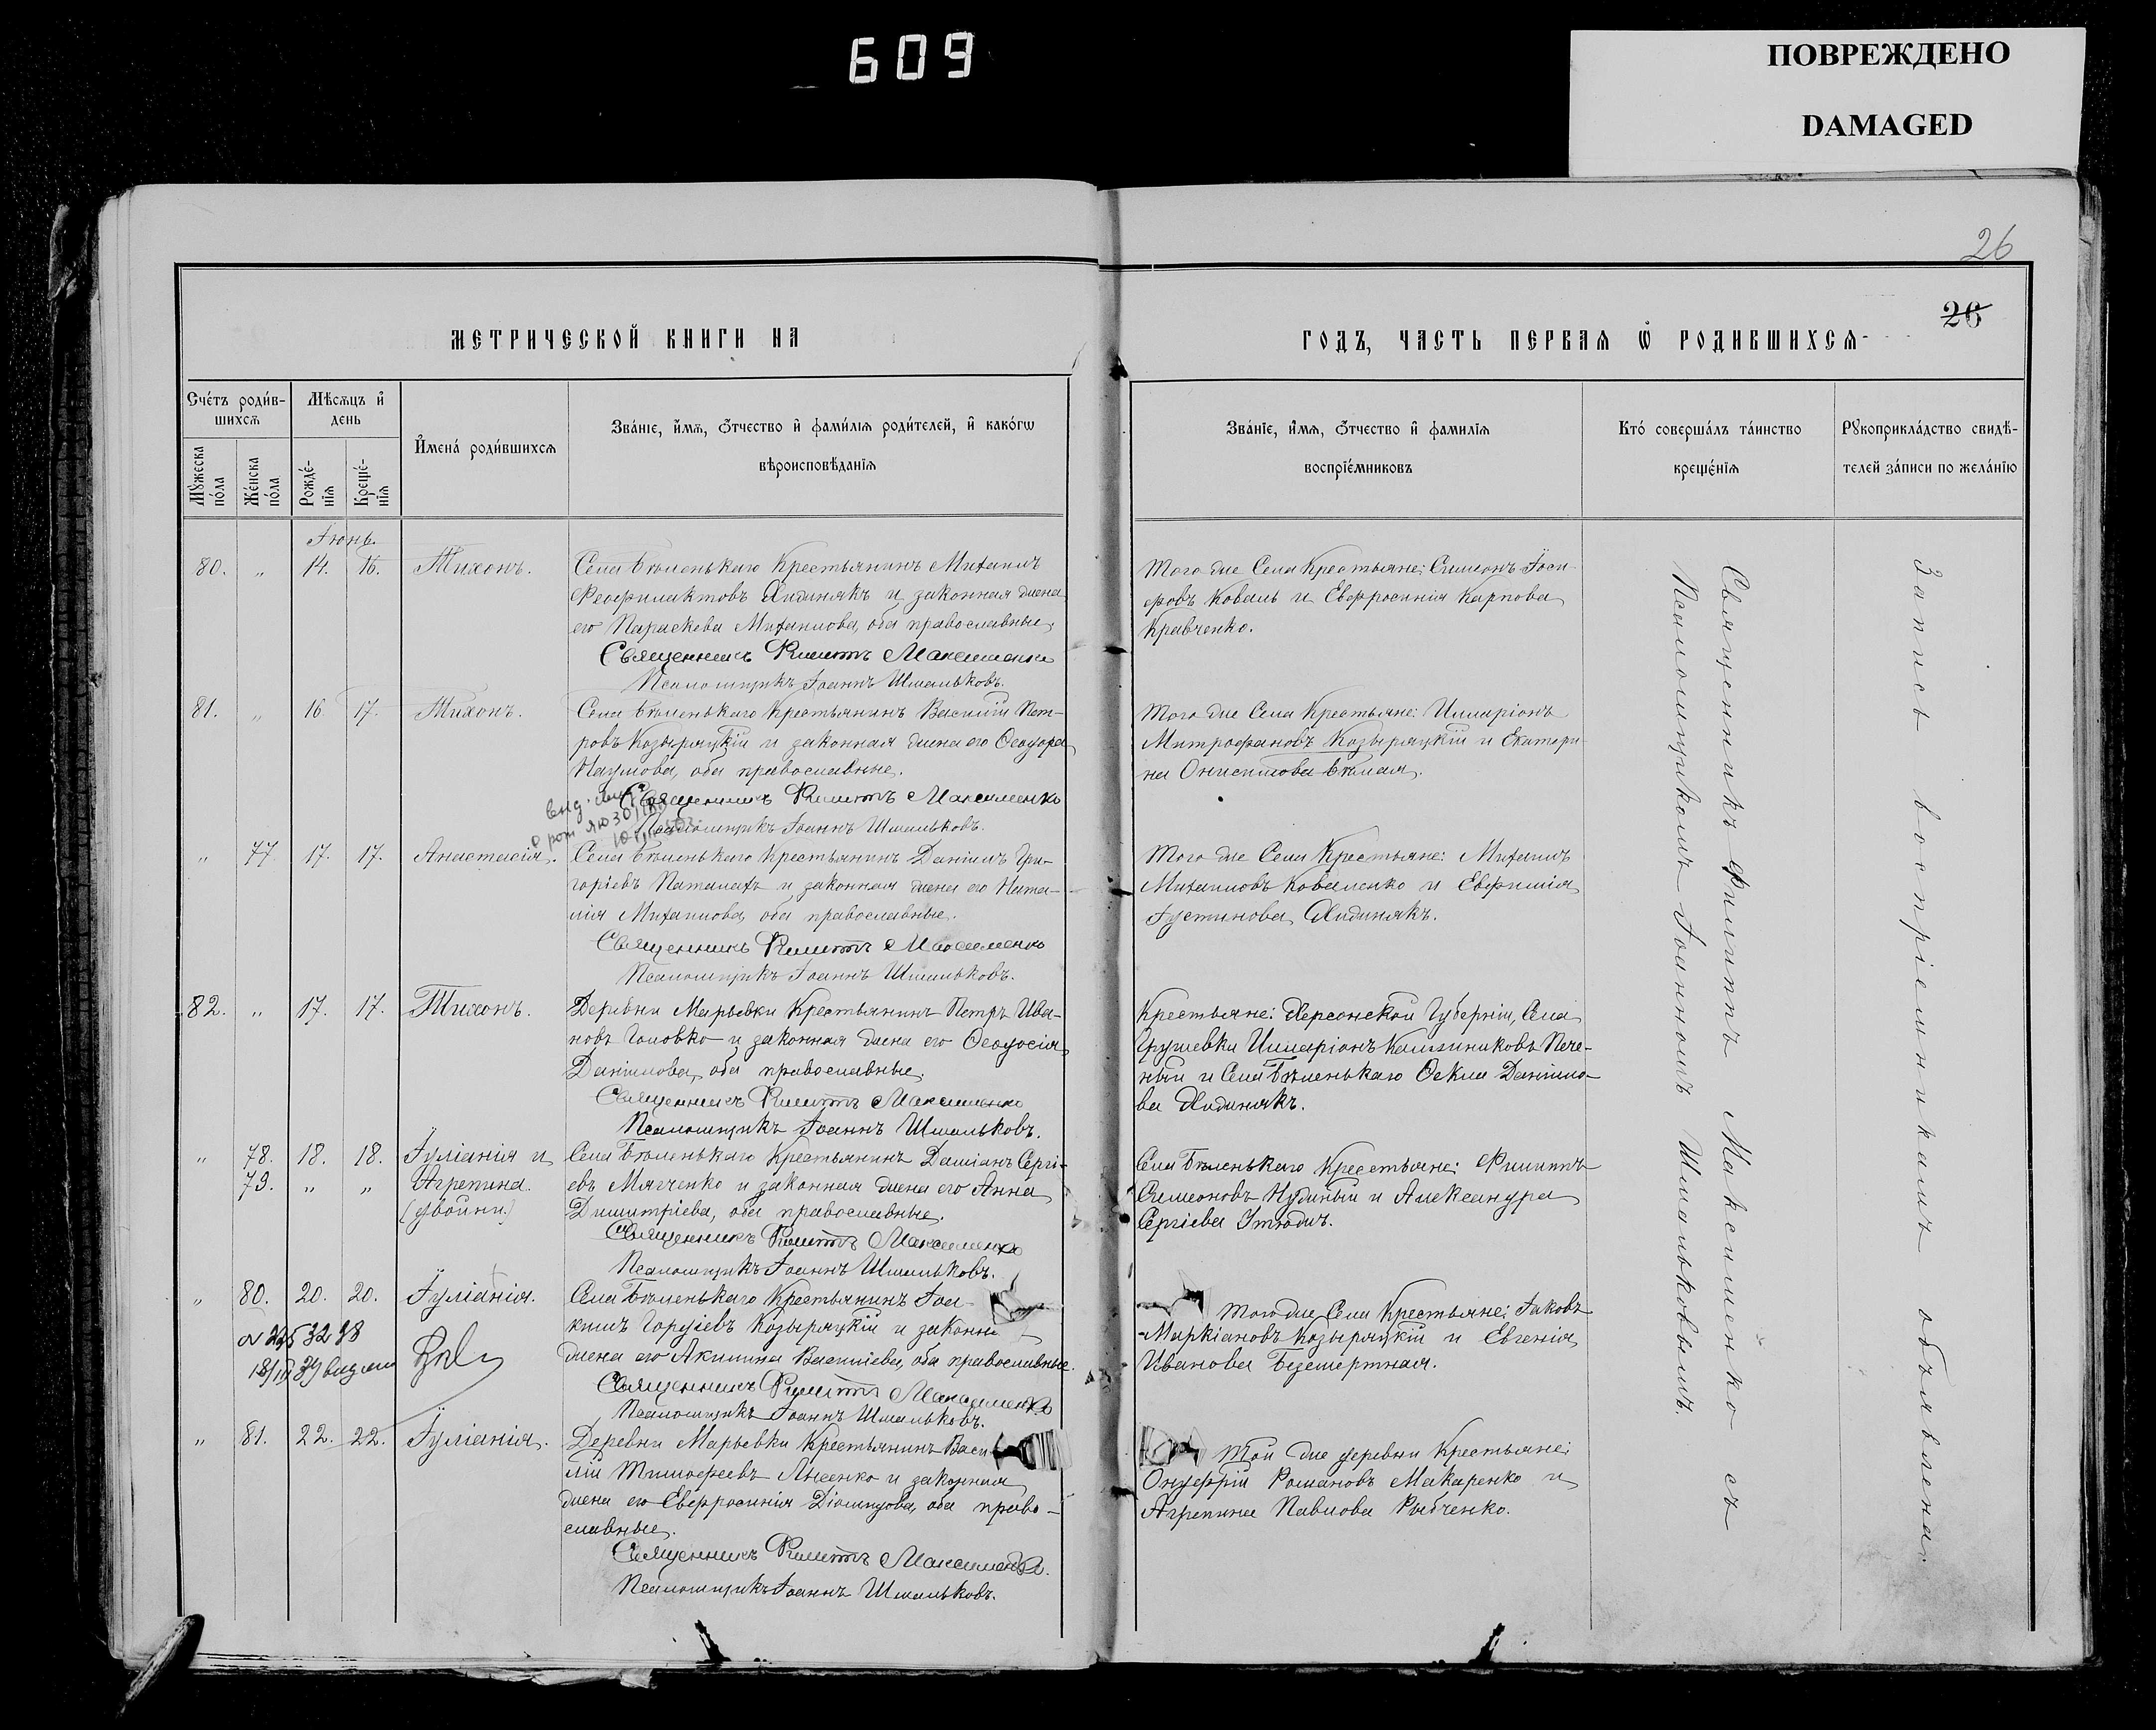 609
ПОВРЕЖДЕНО
DAMAGED
26
26
МЕТРИЧЕСКОЙ КНИГИ НА
ГОДЪ, ЧАСТЬ ПЕРВАЯ Ѡ РОДИВШИХСЯ
Счетъ родив-
шихся
Мѣсяцъ и
день
Мужеска
пола
Женска
пола
Рожде-
нія
Креще-
нія
Имена родившихся
Званіе, имя, отчество и фамилія родителей, и какогѡ
вѣроисповѣданія
Званіе, имя, отчество и фамилія
воспріемниковъ
Кто совершалъ таинство
крещенія
Рукоприкладство свидѣ-
телей записи по желанію
Іюнь.
80. „ 14. 16. Тихонъ.
Села Бѣленькаго Крестьянинъ Михаилъ
Ѳеофилактовъ Хидинякъ и законная жена
его Параскева Михаилова, оба православные.
Священникъ Филиппъ Максименко
Псаломщикъ Іоаннъ Шмальковъ.
Того же Села Крестьяне: Симеонъ Іоси-
фовъ Коваль и Евфросинія Карпова
Кравченко.
81. „ 16 17. Тихонъ.
Села Бѣленькаго Крестьянинъ Василій Пет-
ровъ Козыряцкій и законная жена его Ѳеодора
Наумова, оба православные.
Священникъ Филиппъ Максименко
Псаломщикъ Іоаннъ Шмальковъ.
Того же Села Крестьяне: Илларіонъ
Митрофановъ Козыряцкій и Екатери-
на Онисимова Бѣлая.
„ 77 17. 17. Анастасія.
Села Бѣленькаго Крестьянинъ Даніилъ Гри-
горіевъ Паталахъ и законная жена его Ната-
лія Михаилова, оба православные.
Священникъ Филиппъ Максименко
Псаломщикъ Іоаннъ Шмальковъ.
Того же Села Крестьяне: Михаилъ
Михаиловъ Коваленко и Евфимія
Іустинова Хидинякъ.
82. „ 17. 17. Тихонъ.
Деревни Марьевки Крестьянинъ Петръ Ива-
новъ Головко и законная жена его Ѳеодосія
Даніилова, оба православные.
Священникъ Филиппъ Максименко
Псаломщикъ Іоаннъ Шмальковъ.
Крестьяне: Херсонской Губерніи, Села
Грушевки Илларіонъ Каллиниковъ Пече-
ный и Села Бѣленькаго Ѳекла Даніило-
ва Хидинякъ.
„ 78. 18. 18. Іуліанія и
79. „ „ Агрепина.
(двойни.)
Села Бѣленькаго Крестьянинъ Даміанъ Сергі-
евъ Мягченко и законная жена его Анна
Димитріева, оба православные.
Священникъ Филиппъ Максименко
Псаломщикъ Іоаннъ Шмальковъ.
Села Бѣленькаго Крестьяне: Филиппъ
Симеоновъ Нудный и Александра
Сергіева
„ 80. 20. 20. Іуліанія.
Села Бѣленькаго Крестьянинъ Іоа-
кимъ Гордіевъ Козыряцкій и законна
жена его Акилина Василіева, оба православные.
Священникъ Филиппъ Максименко
Псаломщикъ Іоаннъ Шмальковъ.
Того же Села Крестьяне: Іаковъ
Маркіановъ Козыряцкій и Евгенія
Иванова Безсмертная.
„ 81. 22. 22. Іуліанія.
Деревни Марьевки Крестьянинъ Васи-
лій Тимоѳеевъ Лысенко и законная
жена его Евфросинія Діомидова, оба право-
славные.
Священникъ Филиппъ Максименко.
Псаломщикъ Іоаннъ Шмальковъ.
Той же деревни Крестьяне:
Онуфрій Романовъ Макаренко и
Агрепина Павлова Рыбченко.
Священникъ Филиппъ Максименко съ
Псаломщикомъ Іоанномъ Шмальковымъ.
Запись воспріемникамъ объявлена.